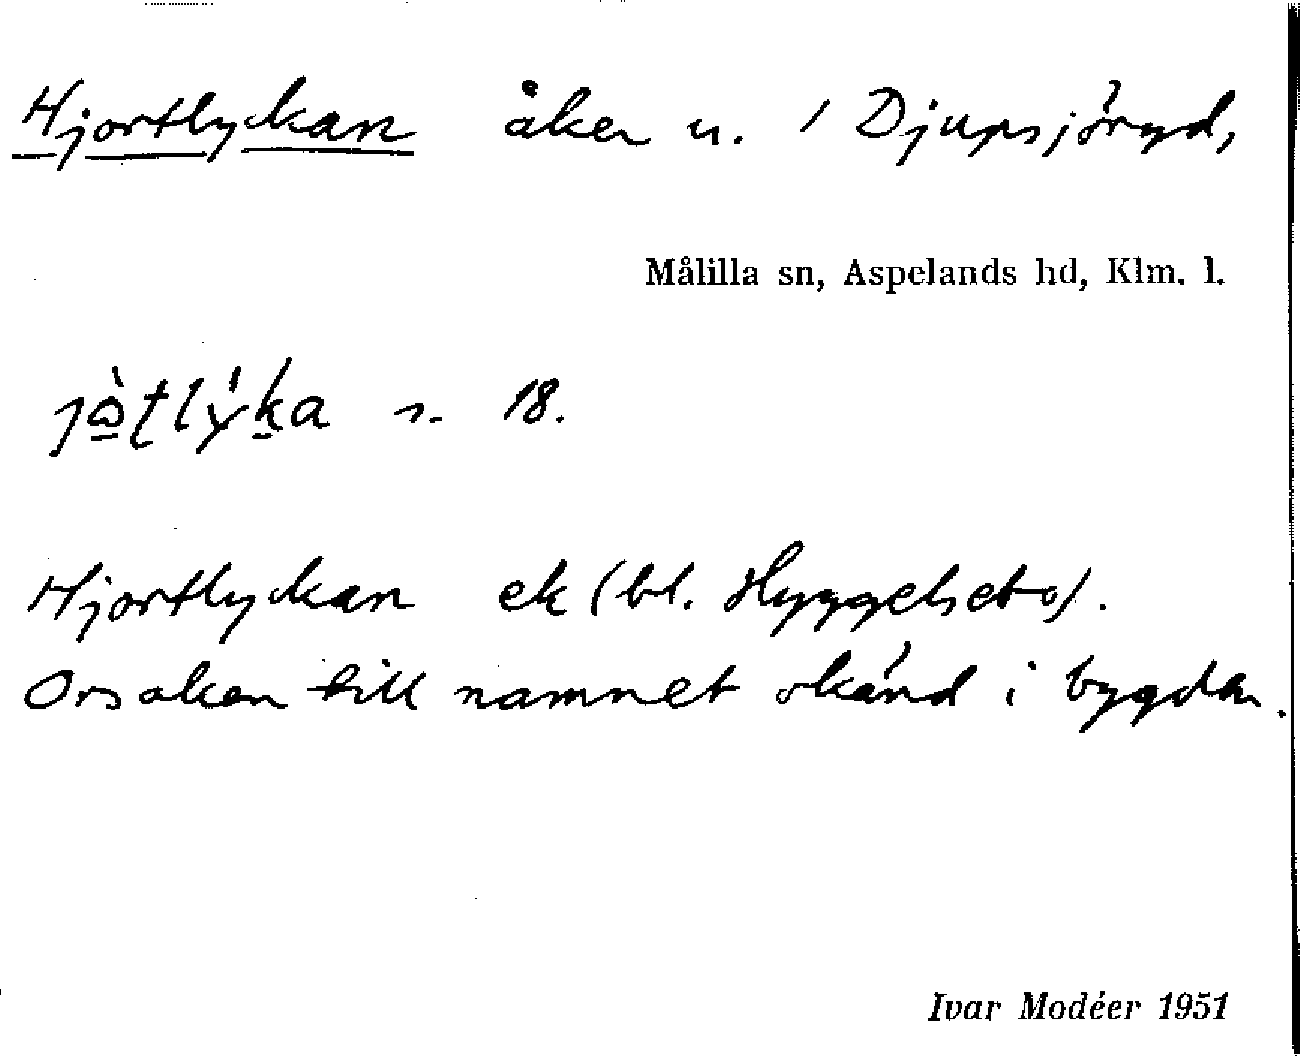 Hjortlyckan åker u. 1 Djupsjöryd,
Målilla sn, Aspelands hd, Klm. l.
s. 18.
Hjortlyckan ek (bl. Hyggelseto).
Orsaken till namnet okänd i bygden.
Ivar Modéer 1951